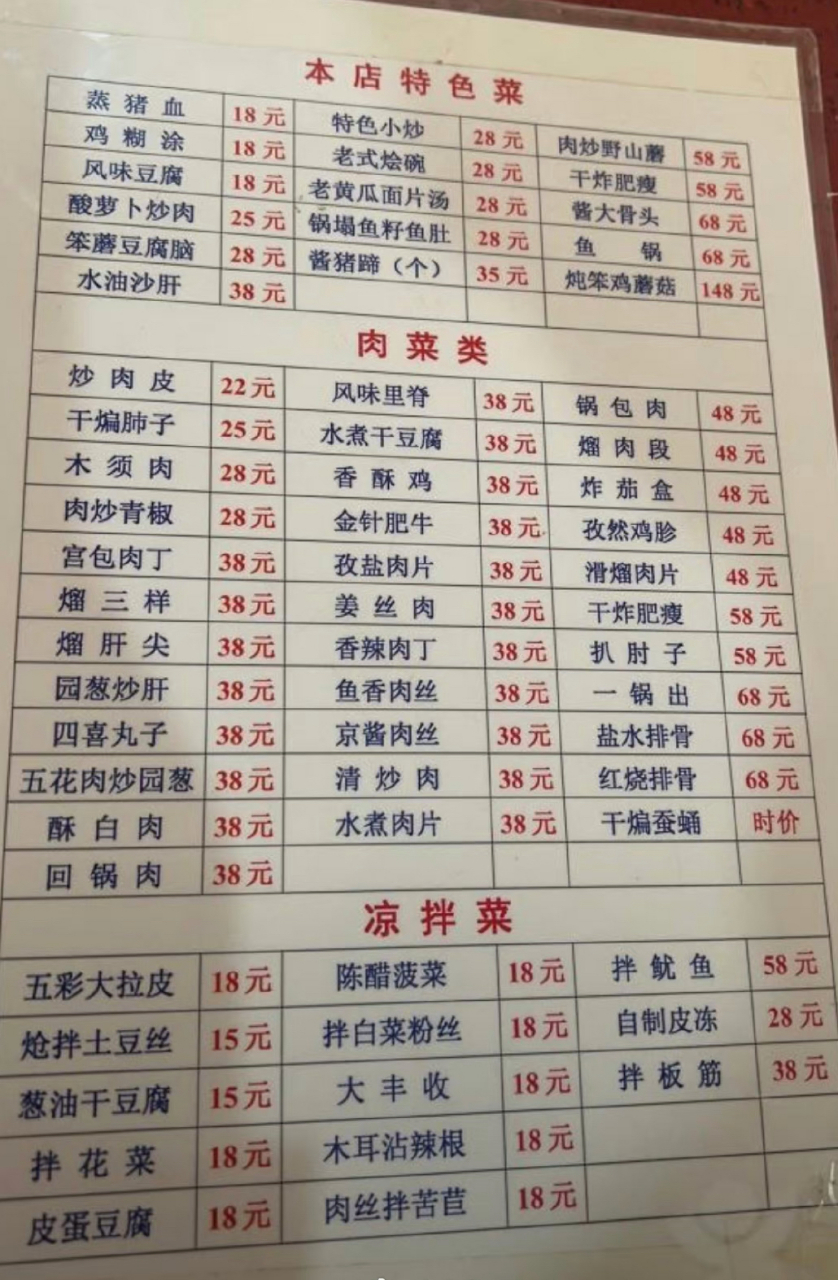 本店特色菜
蒸猪血 18元 特色小炒 28元 肉炒野山蘑 58元
鸡糊涂 18元 老式烩碗 28元 干炸肥瘦 58元
风味豆腐 18元 老黄瓜面片汤 28元 酱大骨头 68元
酸萝卜炒肉 25元 锅塌鱼籽鱼肚 28元 鱼锅 68元
笨蘑豆腐脑 28元 酱猪蹄（个） 35元 炖笨鸡蘑菇 148元
水油沙肝 38元
肉菜类
炒肉皮 22元 风味里脊 38元 锅包肉 48元
干煸肺子 25元 水煮干豆腐 38元 熘肉段 48元
木须肉 28元 香酥鸡 38元 炸茄盒 48元
肉炒青椒 28元 金针肥牛 38元 孜然鸡胗 48元
宫包肉丁 38元 孜盐肉片 38元 滑熘肉片 48元
熘三样 38元 姜丝肉 38元 干炸肥瘦 58元
熘肝尖 38元 香辣肉丁 38元 扒肘子 58元
园葱炒肝 38元 鱼香肉丝 38元 一锅出 68元
四喜丸子 38元 京酱肉丝 38元 盐水排骨 68元
五花肉炒园葱 38元 清炒肉 38元 红烧排骨 68元
酥白肉 38元 水煮肉片 38元 干煸蚕蛹 时价
回锅肉 38元
凉拌菜
五彩大拉皮 18元 陈醋菠菜 18元 拌鱿鱼 58元
炝拌土豆丝 15元 拌白菜粉丝 18元 自制皮冻 28元
葱油干豆腐 15元 大丰收 18元 拌板筋 38元
拌花菜 18元 木耳沾辣根 18元
皮蛋豆腐 18元 肉丝拌苦苣 18元